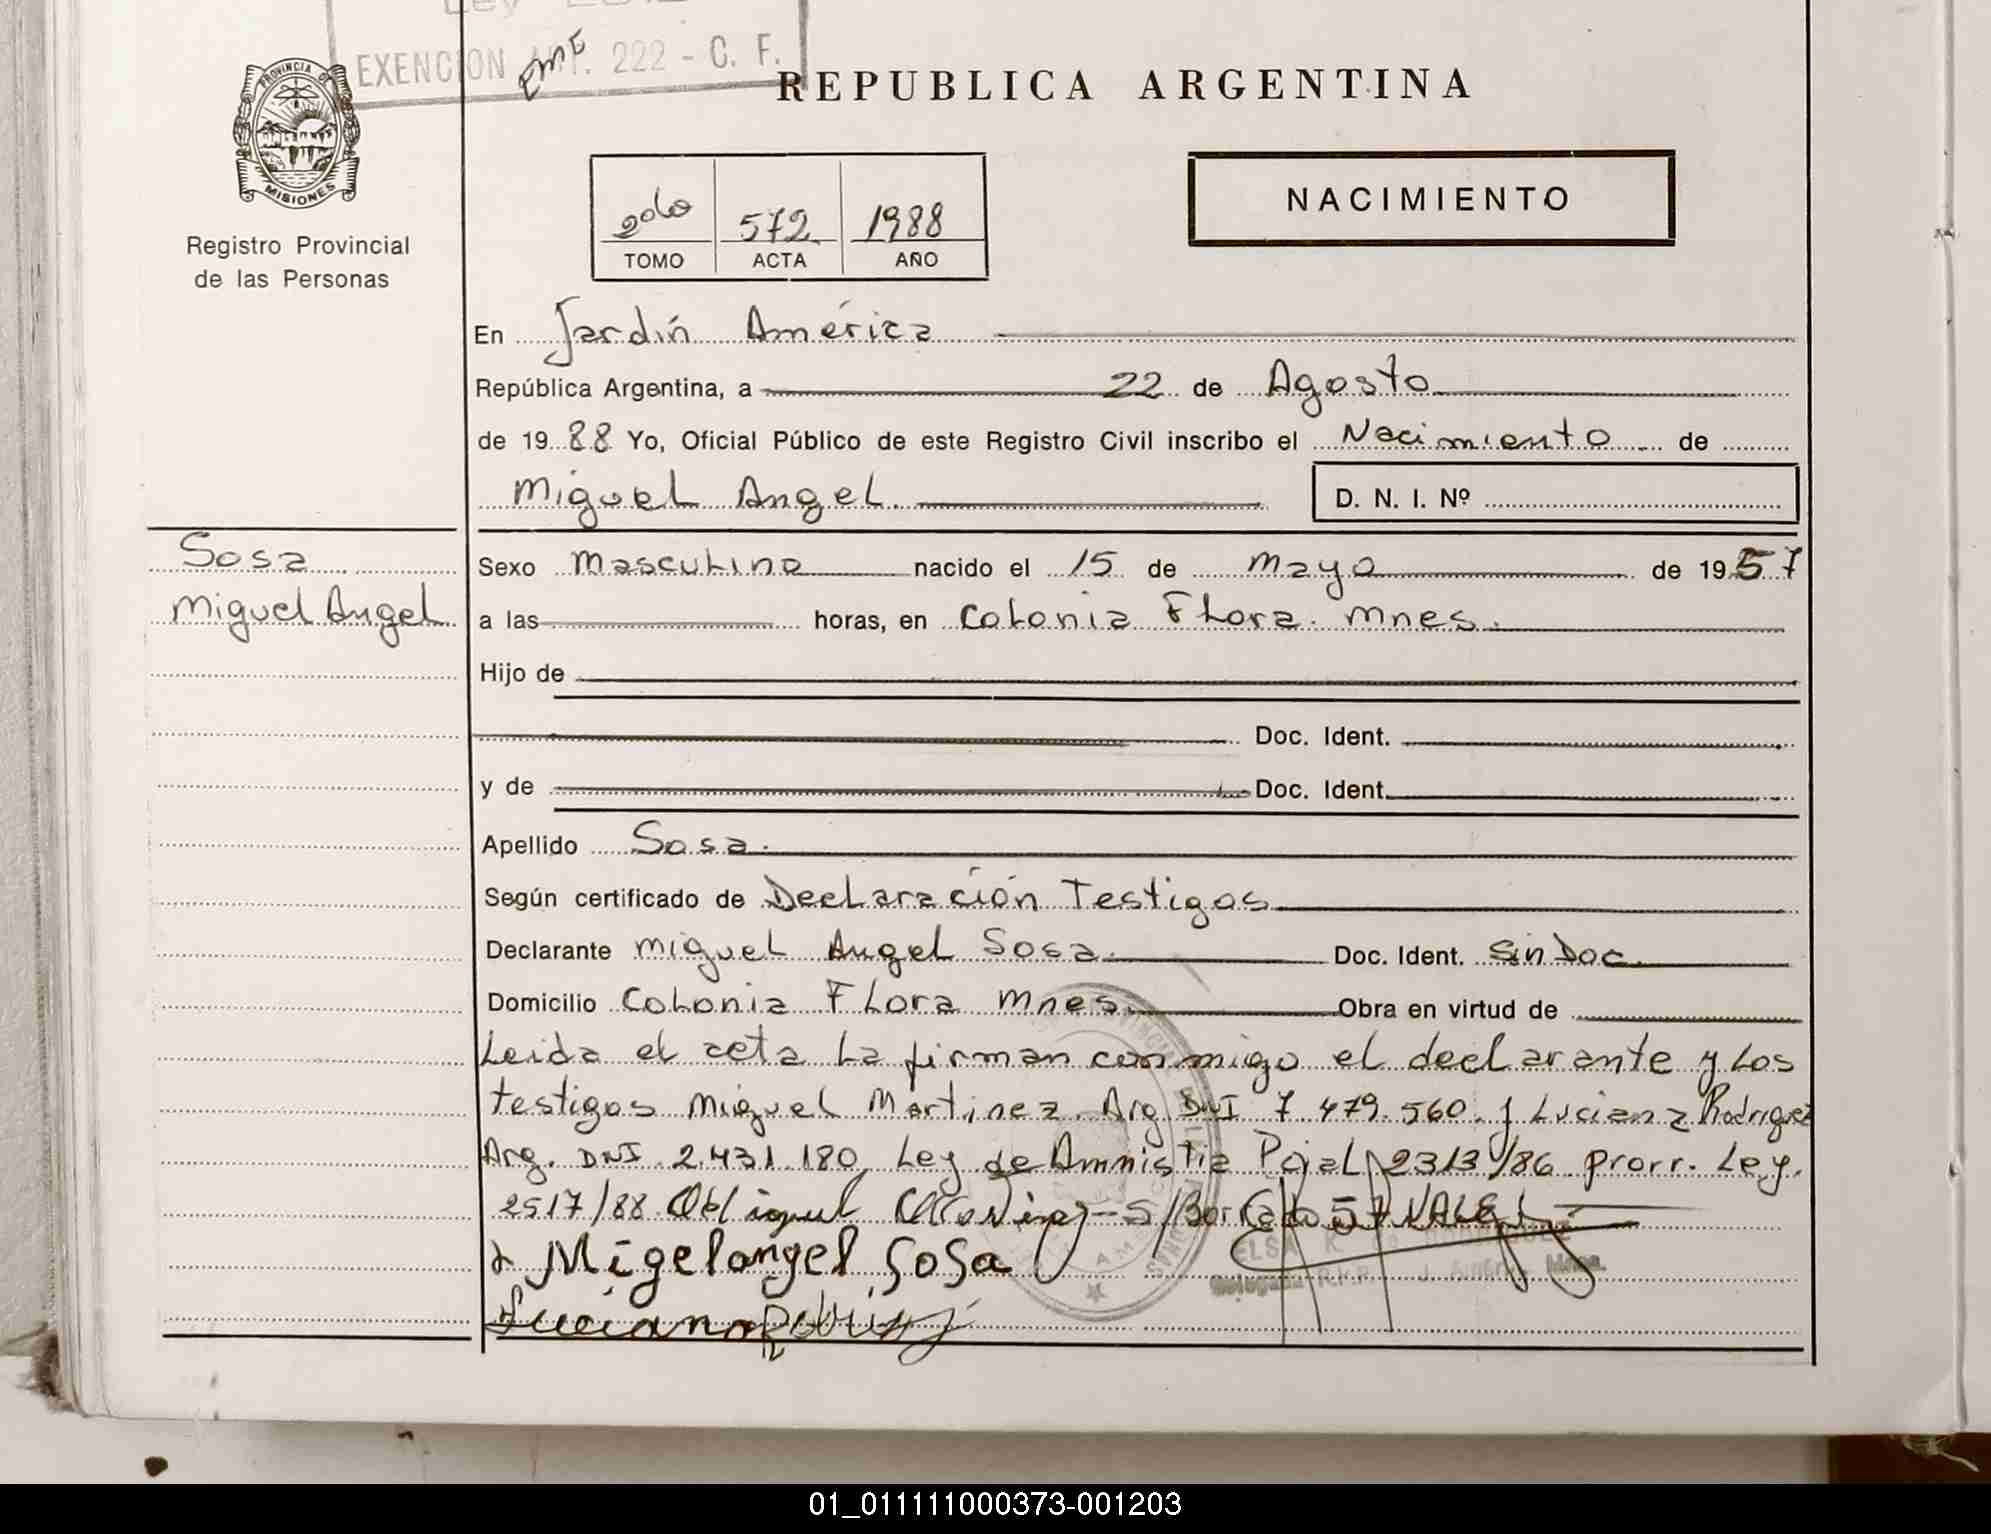 EXENCION ART. 222 - C. F.
PROVINCIA DE
MISIONES
Registro Provincial
de las Personas
REPUBLICA ARGENTINA
NACIMIENTO
2do 572 1988
TOMO ACTA AÑO
En Jardín América
República Argentina, a 22 de Agosto
de 1988 Yo, Oficial Público de este Registro Civil inscribo el Nacimiento de
Miguel Angel. D. N. I. Nº
Sosa
Miguel Angel
Sexo Masculino nacido el 15 de Mayo de 1957
a las horas, en Colonia Flora. Mnes.
Hijo de
Doc. Ident.
y de Doc. Ident.
Apellido Sosa.
Según certificado de Declaración Testigos
Declarante Miguel Angel Sosa. Doc. Ident. Sin Doc.
Domicilio Colonia Flora Mnes. Obra en virtud de
Leida el acta la firman conmigo el declarante y los
testigos Miguel Martinez. Arg. DNI 7.479.560. y Luciana Rodriguez
Arg. DNI 2.431.180. Ley de Amnistia Pcial 2313/86 prorr. Ley.
2517/88. S/Borrado 57 VALE
Migelangel Sosa
ELSA
01_011111000373-001203